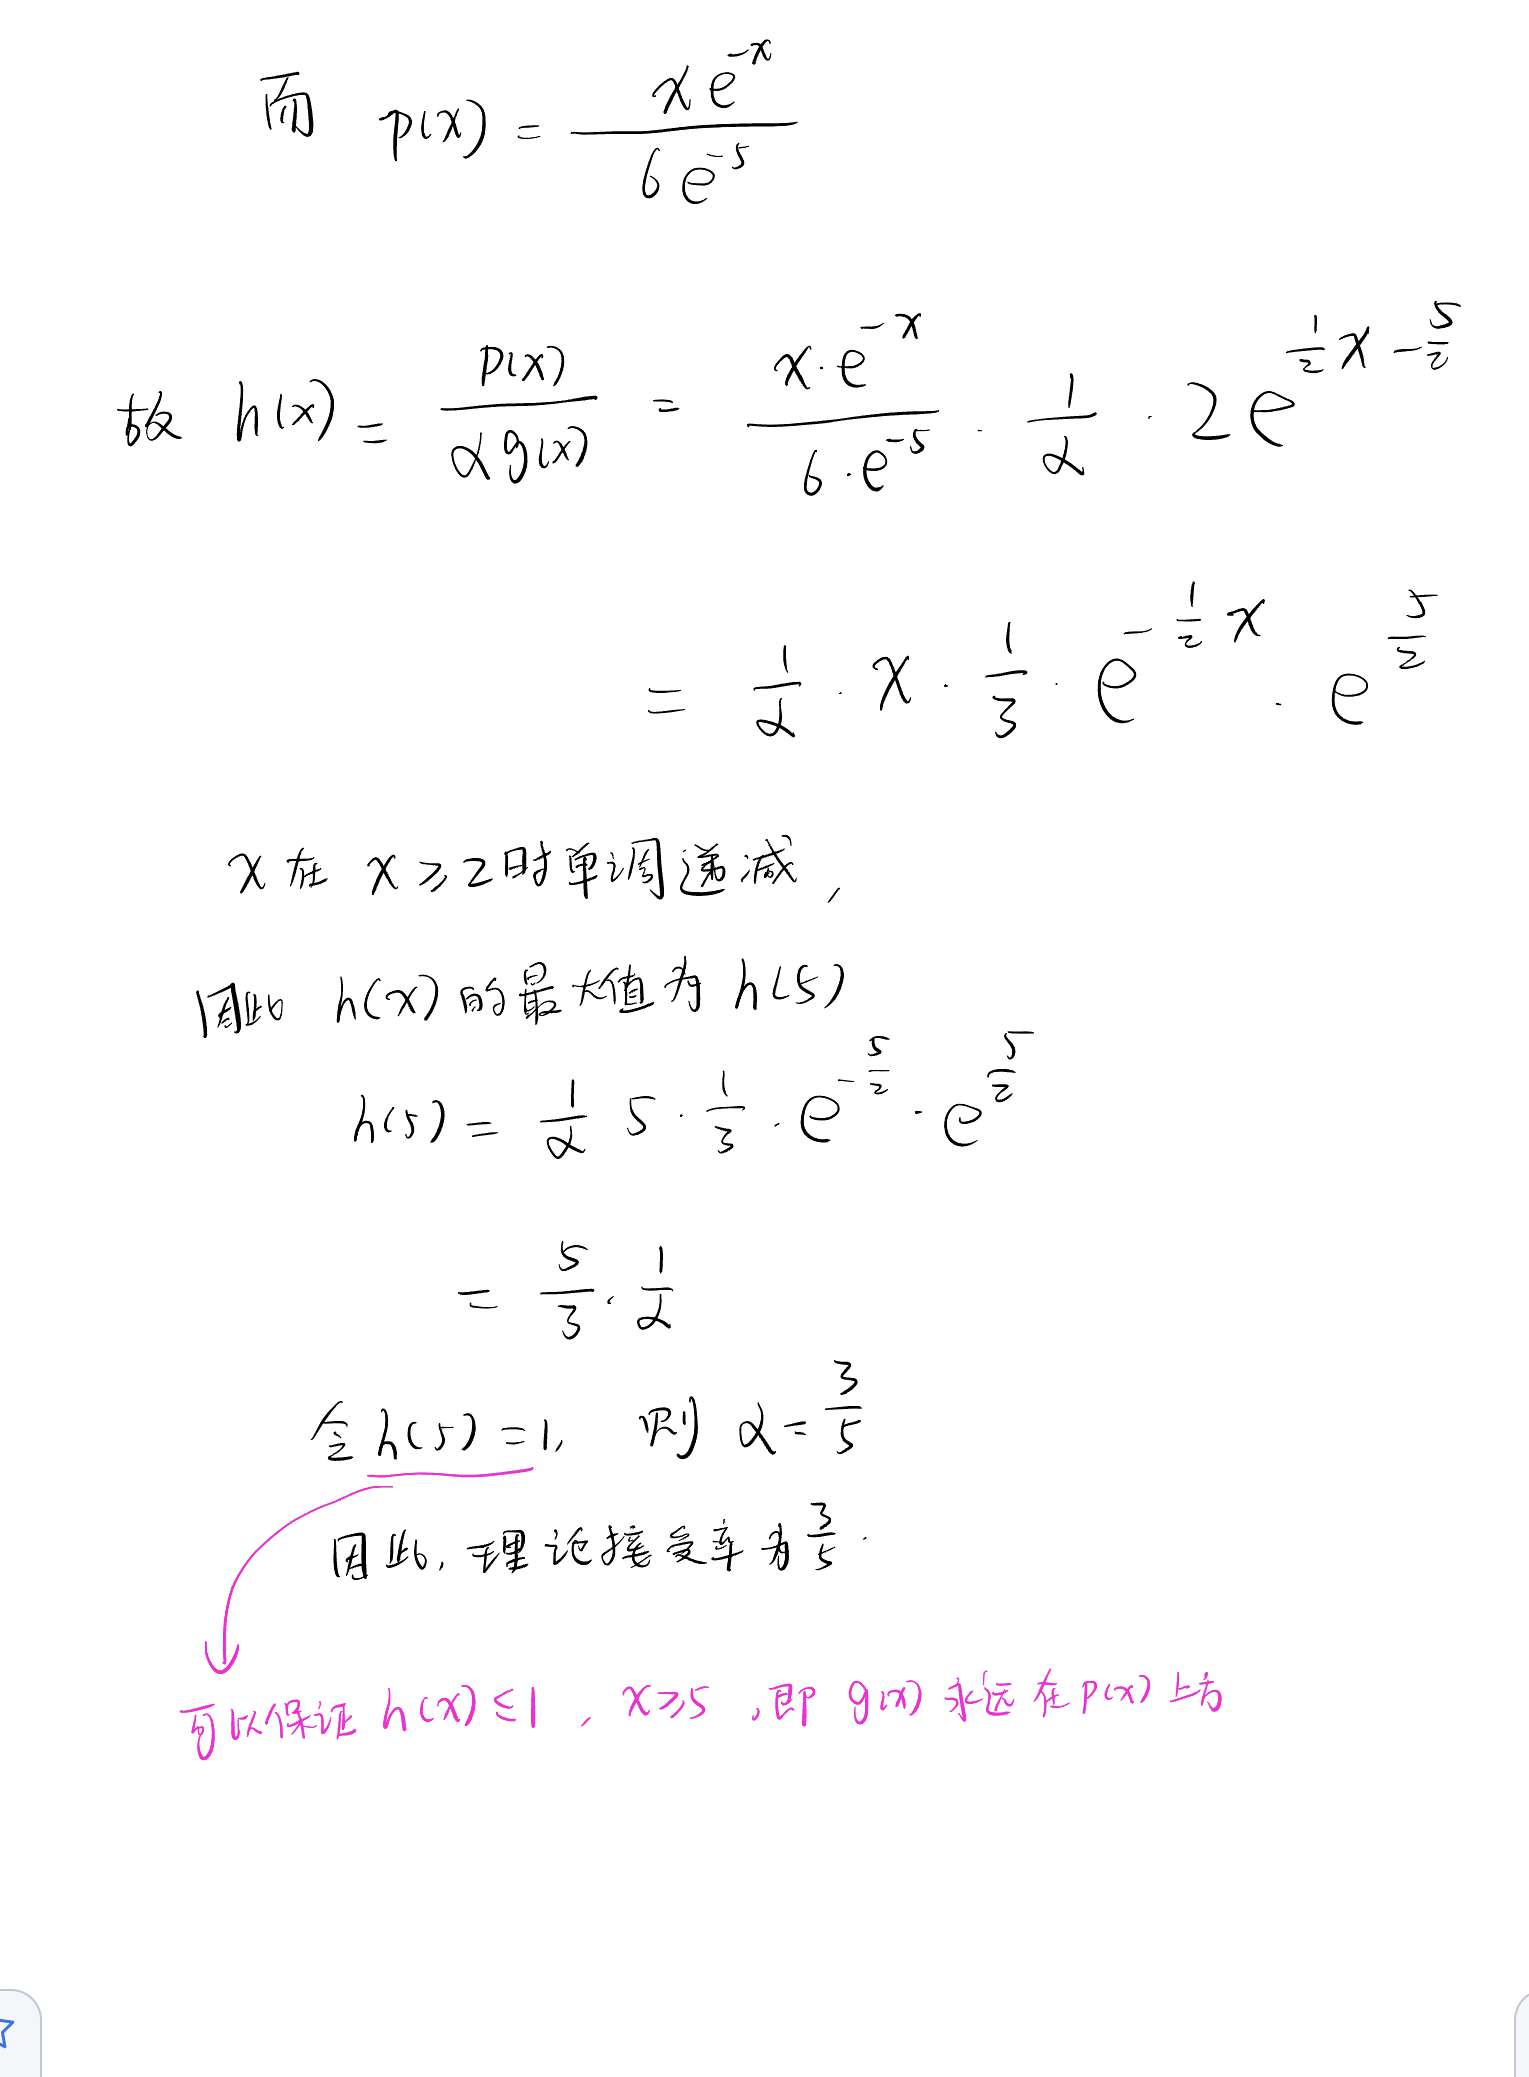 而 p(x) = \frac{x e^{-x}}{6 e^{-5}}
故 h(x) = \frac{p(x)}{α g(x)} = \frac{x·e^{-x}}{6·e^{-5}} · \frac{1}{α} · 2e^{\frac{1}{2}x - \frac{5}{2}}
= \frac{1}{α} · x · \frac{1}{3} · e^{-\frac{1}{2}x} · e^{\frac{5}{2}}
x 在 x ≥ 2 时单调递减,
因此 h(x) 的最大值为 h(5)
h(5) = \frac{1}{α} 5 · \frac{1}{3} · e^{-\frac{5}{2}} · e^{\frac{5}{2}}
= \frac{5}{3} · \frac{1}{α}
令 h(5) = 1, 则 α = \frac{3}{5}
因此, 理论接受率为 \frac{3}{5}.
可以保证 h(x) ≤ 1, x ≥ 5, 即 g(x) 永远在 p(x) 上方